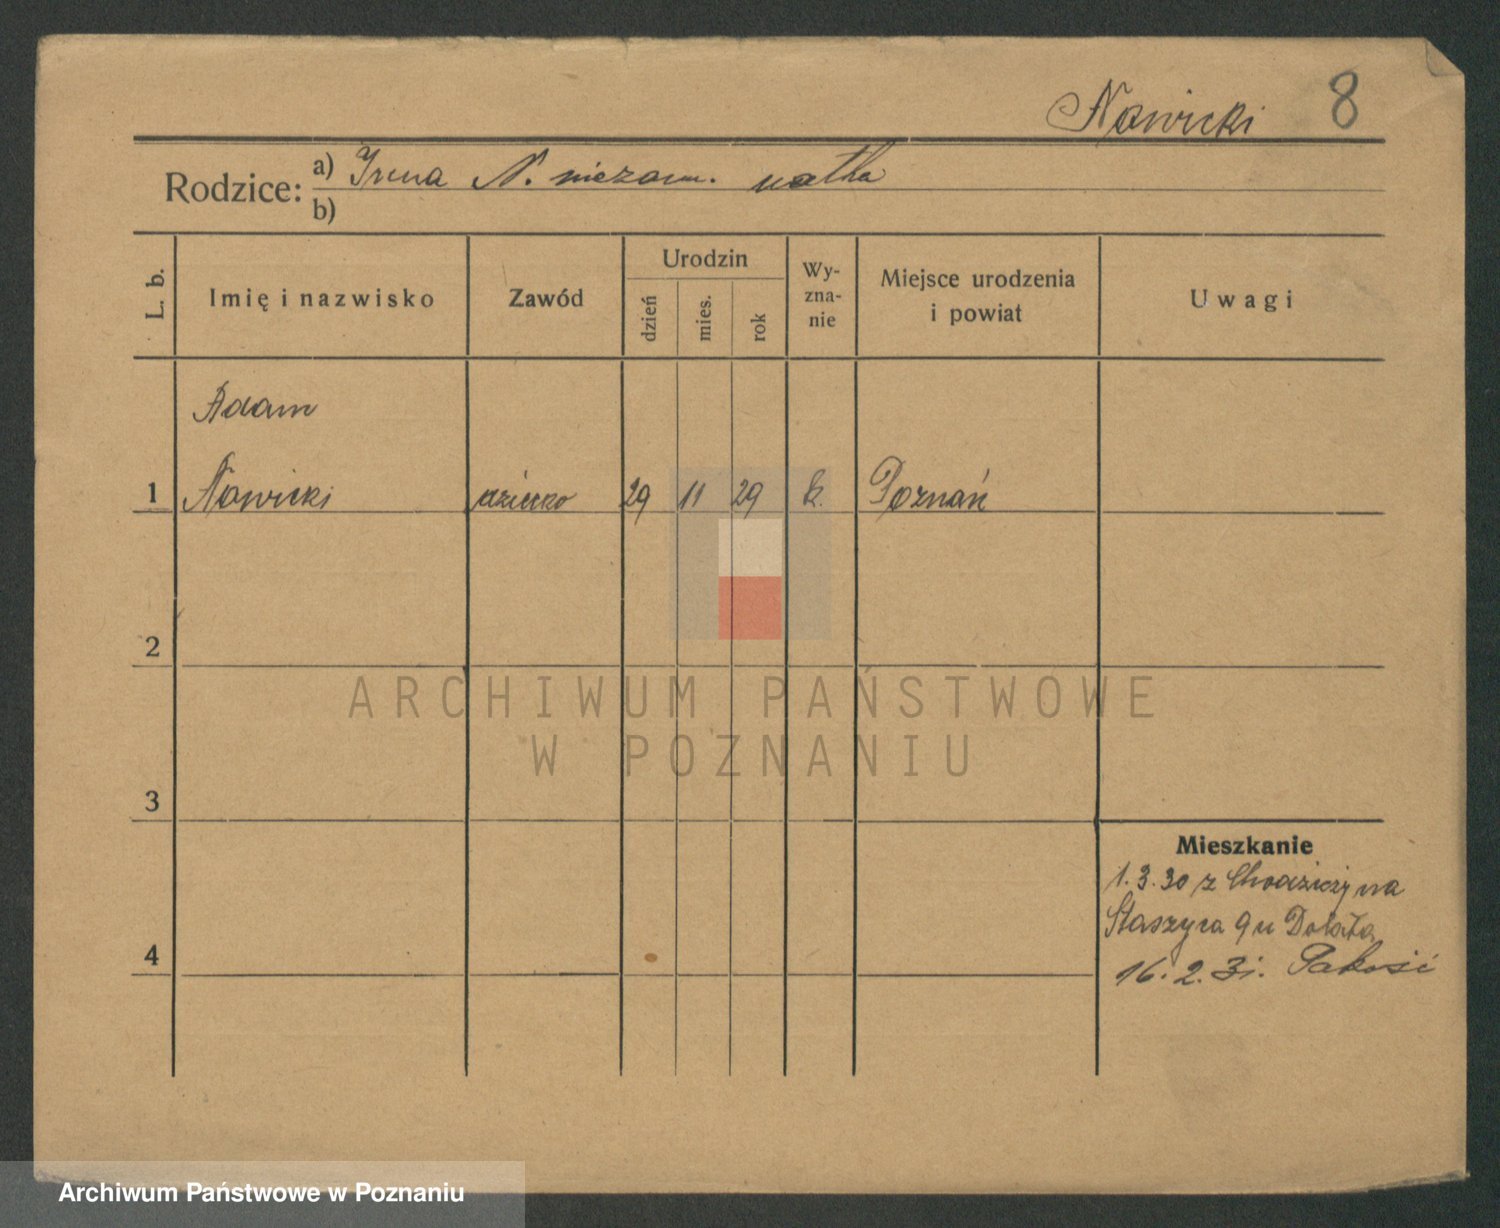 Nowicki 8
Rodzice:
a) Irena N. niezam. matka
b)
L. b.
Imię i nazwisko
Zawód
Urodzin
dzień
mies.
rok
Wy-
zna-
nie
Miejsce urodzenia
i powiat
Uwagi
Adam
1 Nowicki dziecko 29 11 29 k. Poznań
2
ARCHIWUM PAŃSTWOWE
W POZNANIU
3
Mieszkanie
1.3.30 z Chodzieży na
Staszyca 9 u Dolata
4
16.2.31. Pakość
Archiwum Państwowe w Poznaniu